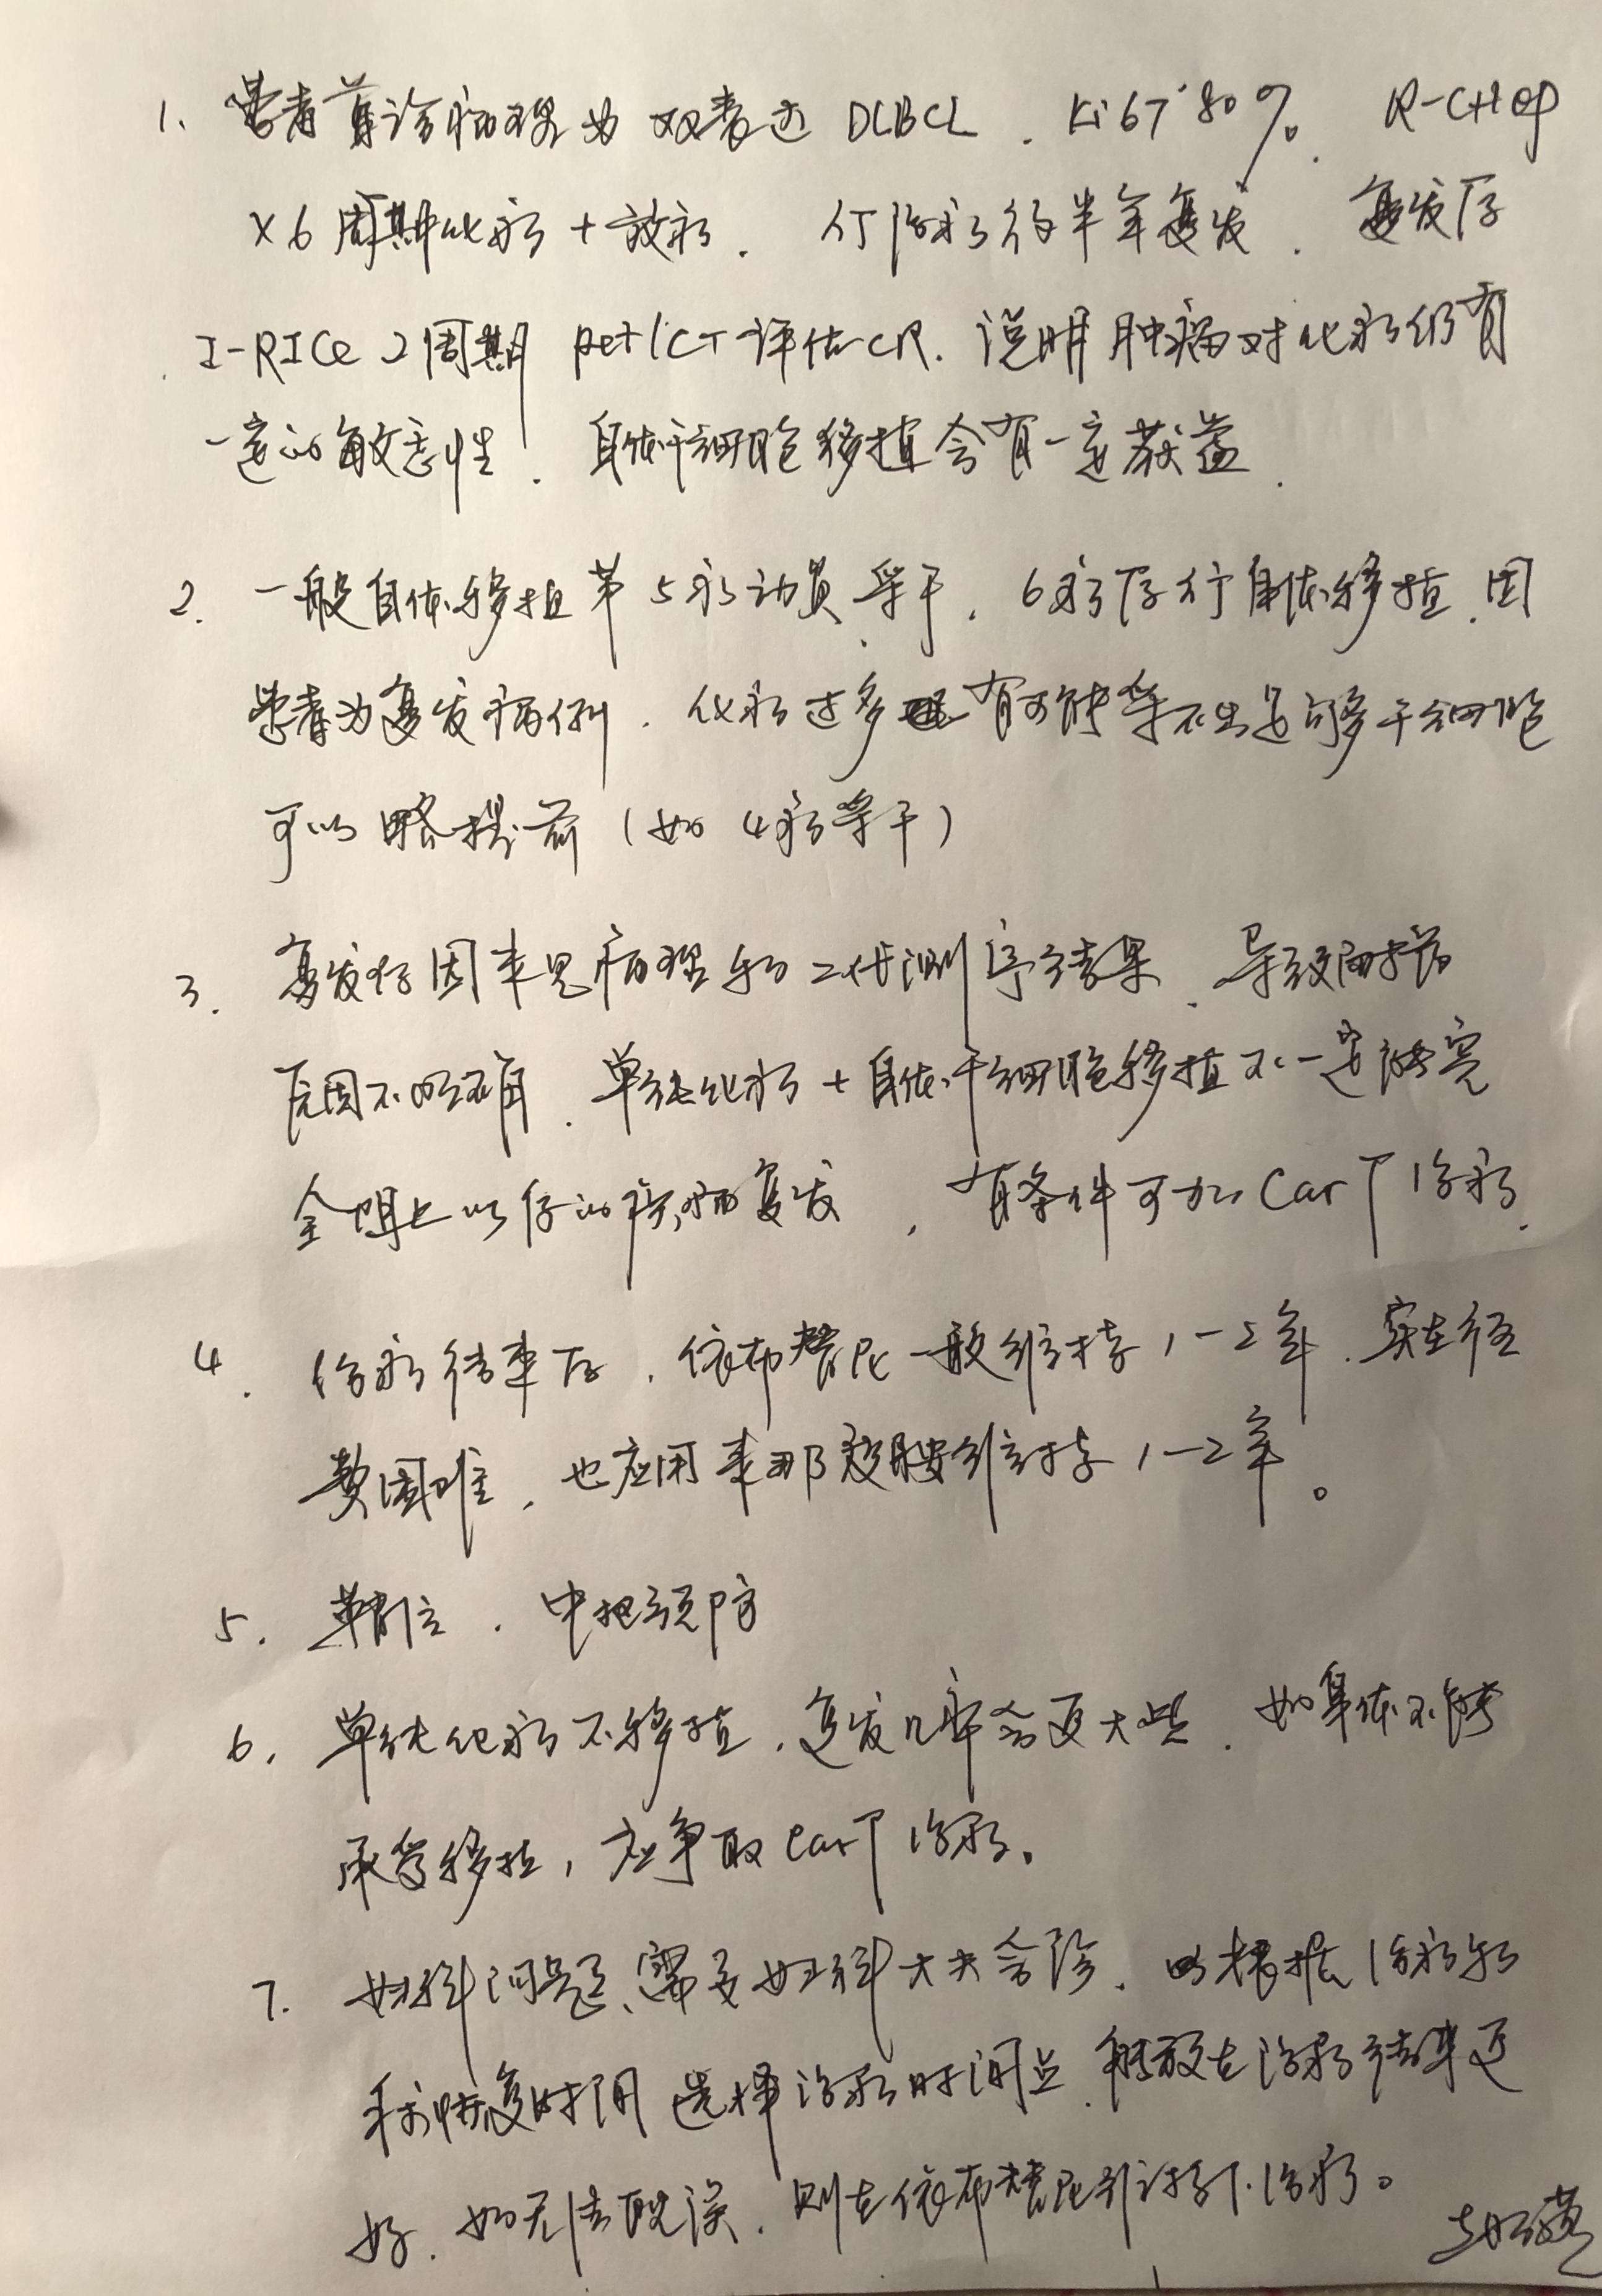 1. 患者首诊病理为双表达 DLBCL. Ki67 80%. R-CHOP
×6周期化疗+放疗. 行治疗后半年复发. 复发后
I-RICE 2周期 pet/CT评估CR. 说明肿瘤对化疗仍有
一定的敏感性. 自体干细胞移植会有一定获益.
2. 一般自体移植第5疗动员采干. 6疗后行自体移植. 因
患者为复发病例. 化疗过多 有可能采不出足够干细胞
可以略提前(如4疗采干)
3. 复发后因未见病理和二代测序结果. 导致
原因不明确. 单纯化疗+自体干细胞移植不一定能完
全阻止以后的 复发, 有条件可加CarT治疗.
4. 治疗结束后, 依布替尼一般维持1-2年. 实在经
费困难, 也应用来那度胺维持1-2年。
5. 鞘注. 中枢预防
6. 单纯化疗不移植, 复发几率会更大些. 如身体不能
承受移植, 应争取CarT治疗。
7. 妇科问题, 需要妇科大夫会诊. 根据治疗和
恢复时间选择治疗时间点. 能放在治疗结束更
好. 如无法耽误. 则在依布替尼维持下治疗。